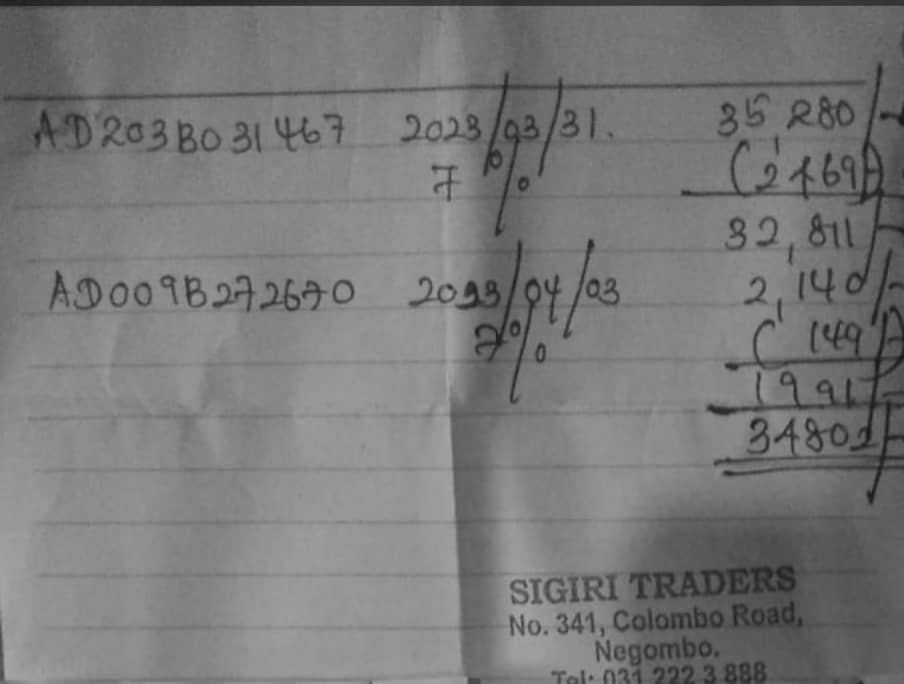 AD203B031467 2023/03/31. 35,280/-
7% (2,469/-)
32,811/-
AD009B272670 2023/04/03 2,140/-
7% (149/-)
1991/-
34802/-
SIGIRI TRADERS
No. 341, Colombo Road,
Negombo.
Tel: 031 222 3 888